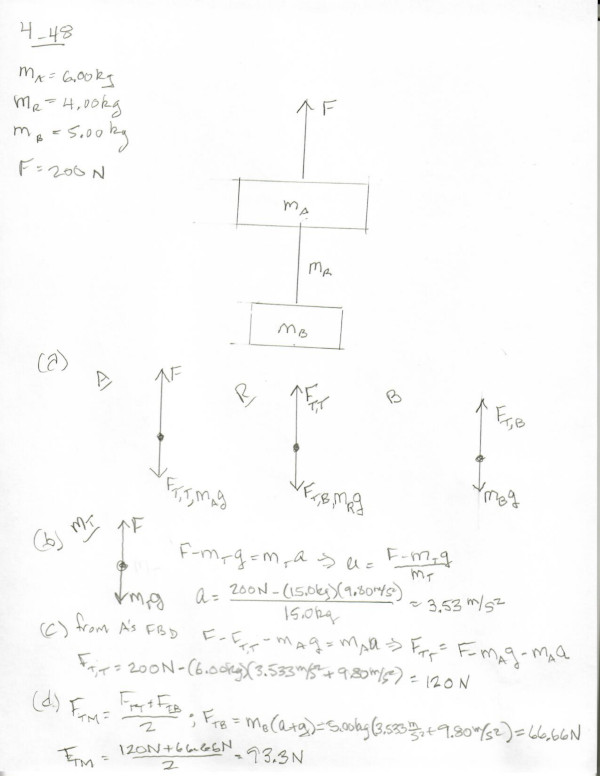 4-48
m_A = 6.00kg
m_R = 4.00kg
m_B = 5.00kg
F = 200 N
F
m_A
m_R
m_B
(a)
A F
R F_T,T
B
F_T,B
F_T,T, m_Ag
F_T,B, m_Rg
m_Bg
(b) m_T F
m_Tg
F - m_Tg = m_Ta ⇒ a = F - m_Tg / m_T
a = 200N - (15.0kg)(9.80m/s²) / 15.0kg = 3.53 m/s²
(c) from A's FBD F - F_T,T - m_Ag = m_Aa ⇒ F_TT = F - m_Ag - m_Aa
F_T,T = 200N - (6.00kg)(3.533m/s² + 9.80m/s²) = 120N
(d) F_TM = F_TT + F_TB / 2 ; F_TB = m_B(a+g) = 5.00kg(3.533 m/s² + 9.80 m/s²) = 66.66N
F_TM = 120N + 66.66N / 2 = 93.3N